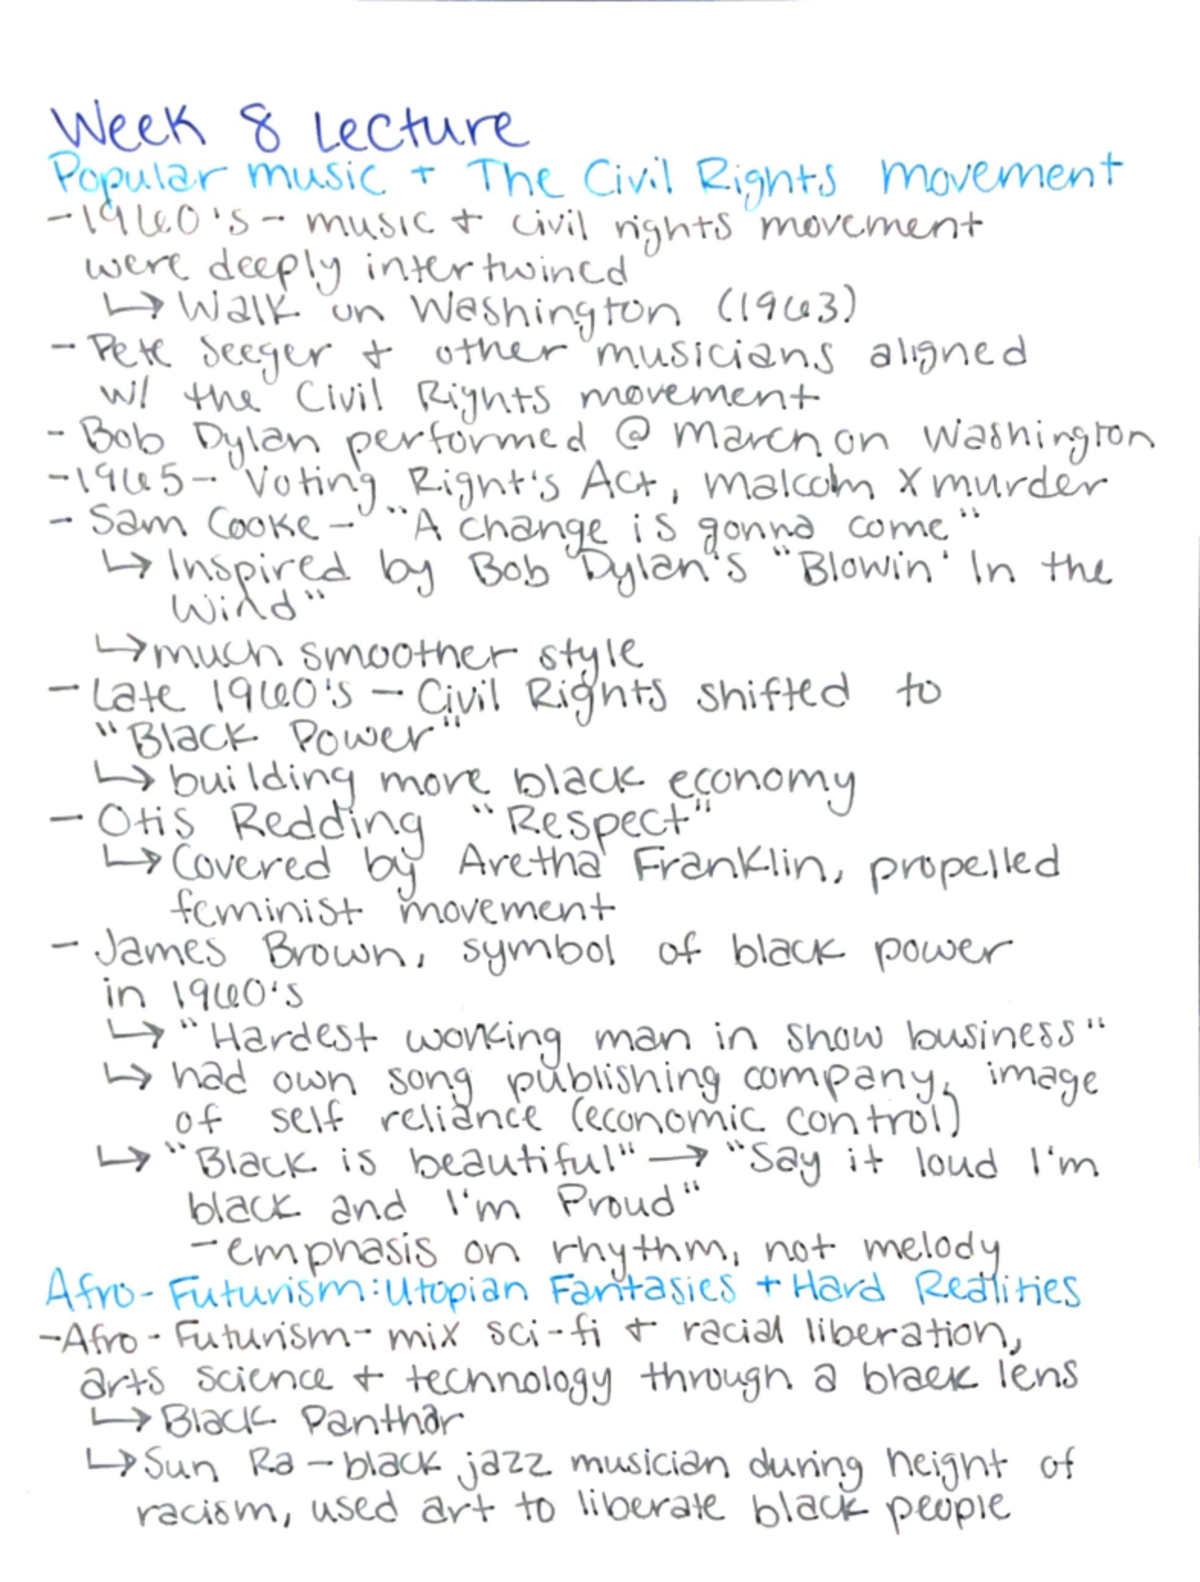 Week 8 Lecture
Popular music + The Civil Rights movement
- 1960's - music + civil rights movement
were deeply intertwined
↳ Walk on Washington (1963)
- Pete Seeger + other musicians aligned
w/ the Civil Rights movement
- Bob Dylan performed @ march on Washington
- 1965 - Voting Right's Act, malcolm X murder
- Sam Cooke - "A change is gonna come"
↳ Inspired by Bob Dylan's "Blowin' In the
Wind"
↳ much smoother style
- Late 1960's - Civil Rights shifted to
"Black Power"
↳ building more black economy
- Otis Redding "Respect"
↳ Covered by Aretha Franklin, propelled
feminist movement
- James Brown, symbol of black power
in 1960's
↳ "Hardest working man in show business"
↳ had own song publishing company, image
of self reliance (economic control)
↳ "Black is beautiful" → "Say it loud I'm
black and I'm Proud"
- emphasis on rhythm, not melody
Afro-Futurism: Utopian Fantasies + Hard Realities
- Afro-Futurism - mix sci-fi + racial liberation,
arts science + technology through a black lens
↳ Black Panthar
↳ Sun Ra - black jazz musician during height of
racism, used art to liberate black people